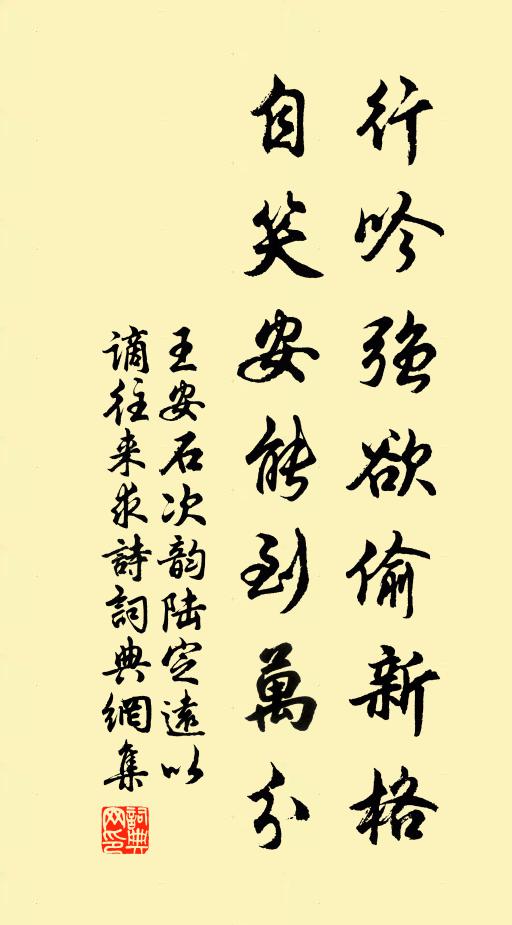 行吟強欲偷新格
自笑安能到萬分
王安石次韵陆定遠以
谪往来求詩詞典網集
詞典
网印